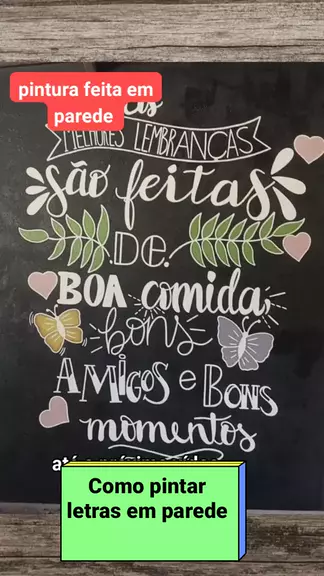 pintura feita em
parede
MELHORES LEMBRANÇAS
são feitas
DE
BOA comida,
bons
AMIGOS e BONS
momentos
Como pintar
letras em parede